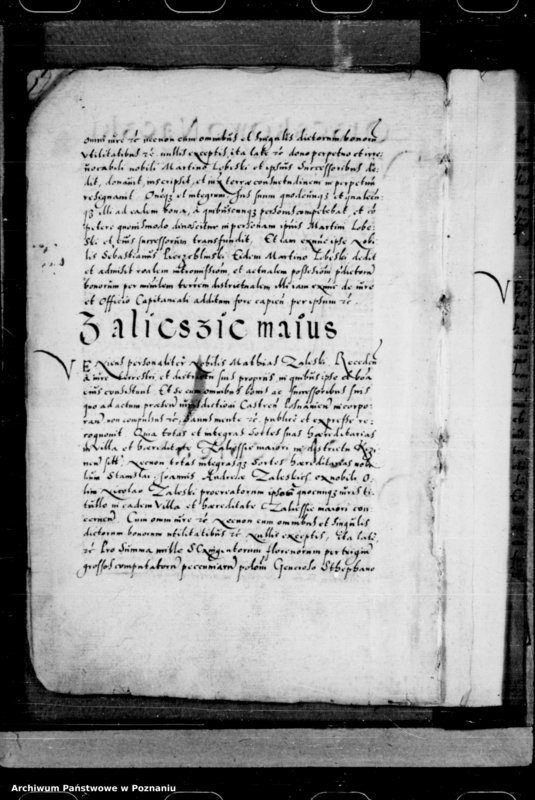 omni iure &c necnon cum omnibus et singulis dictorum bonorum
utilitatibus &c nullis exceptis, ita late &c dono perpetuo et irre=
uocabili nobili Martino Lobeski et ipsius successoribus de=
dit, donauit, inscripsit, et iuxta terrae consuetudinem in perpetuum
resignauit. Omneq et integrum Ius suum quodcunq et qualecun
q illi ad eadem bona, a quibuscunq personis competebat, et co
petere quomodo dinoscitur in personam ipsius Martini Lobe=
ski et eius successorum transfundit. Et iam exnunc ipse Nobi
lis Sebastianus Eidem Martino Lobeski dedit
et admisit realem intromissionem, et actualem possessionem predictorum
bonorum per ministerialem terrestrem districtualem exnunc de iure
et Officio Capitaneali additum fore capien per ipsum &c
Zalieszie maius
Exiens personaliter Nobilis Mathias Zaleski, Recedens
a iure terrestri et districtu suis propriis in quibus ipse et bona
eius consistunt. Et se cum omnibus bonis ac successoribus suis
quo ad actum presentem iurisdictioni Castren Posnanien incorpo=
ran non compulsus &c, sanus mente &c publice et expresse re=
cognouit. Quia totas et integras sortes suas haereditarias
in Villa et haereditate Zaliessie maiori in districtu
nen sitas, Necnon totas integrasq sortes haereditarias nobi
lium Stanislai, Joannis Andreae Zaleskich, ex nobili O=
lim Nicolao Zaleski procreatorum ipsum quocunq iuris ti=
tullo in eadem Villa et haereditate Zaliessie maiori con=
cernen. Cum omni iure &c Necnon cum omnibus et singulis
dictorum bonorum utilitatibus &c Nullis exceptis, Ita late
&c Pro Summa mille florenorum per triginta
grossos computatorum pecuniarum polon Generoso Stephano
Archiwum Państwowe w Poznaniu